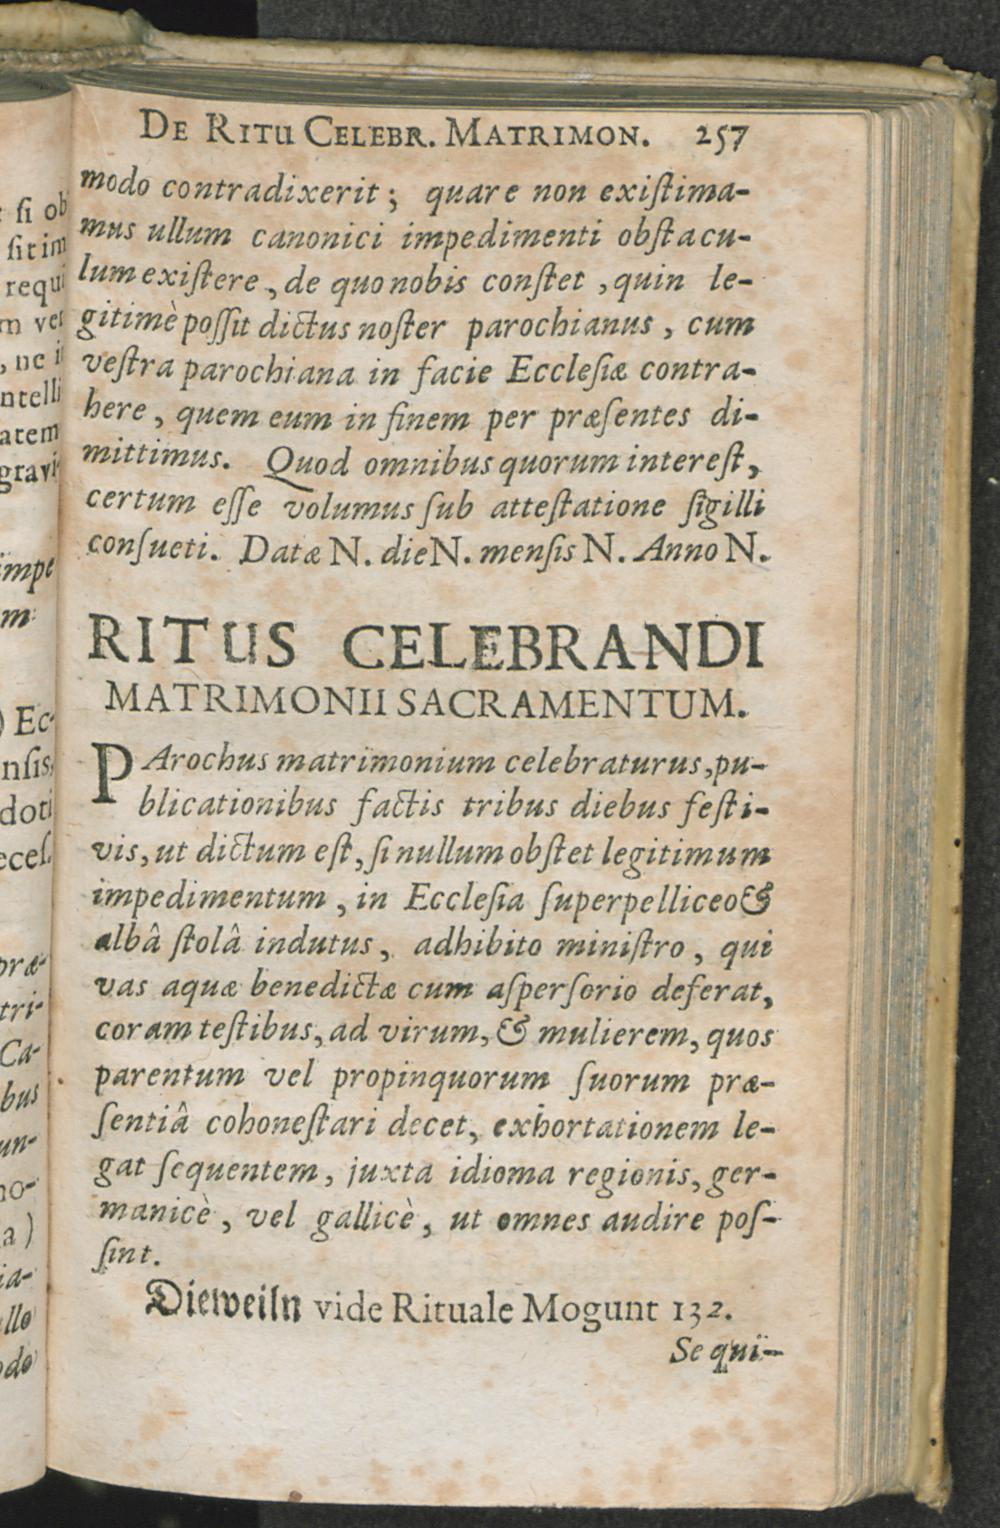 DE RITU CELEBR. MATRIMON. 257
modo contradixerit; quare non exiſtima-
mus ullum canonici impedimenti obſtacu-
lum exiſtere, de quo nobis conſtet, quin le-
gitimè poſſit dictus noſter parochianus, cum
veſtra parochiana in facie Eccleſiæ contra-
here, quem eum in finem per præſentes di-
mittimus. Quod omnibus quorum intereſt,
certum eſſe volumus ſub atteſtatione ſigilli
conſueti. Datæ N. die N. menſis N. Anno N.
RITUS CELEBRANDI
MATRIMONII SACRAMENTUM.
PArochus matrimonium celebraturus, pu-
blicationibus factis tribus diebus feſti-
vis, ut dictum eſt, ſi nullum obſtet legitimum
impedimentum, in Eccleſia ſuperpelliceo &
albâ ſtolâ indutus, adhibito miniſtro, qui
vas aquæ benedictæ cum aſperſorio deferat,
coram teſtibus, ad virum, & mulierem, quos
parentum vel propinquorum ſuorum præ-
ſentiâ cohoneſtari decet, exhortationem le-
gat ſequentem, juxta idioma regionis, ger-
manicè, vel gallicè, ut omnes audire poſ-
ſint.
Dieweiln vide Rituale Mogunt 132.
Sequi-